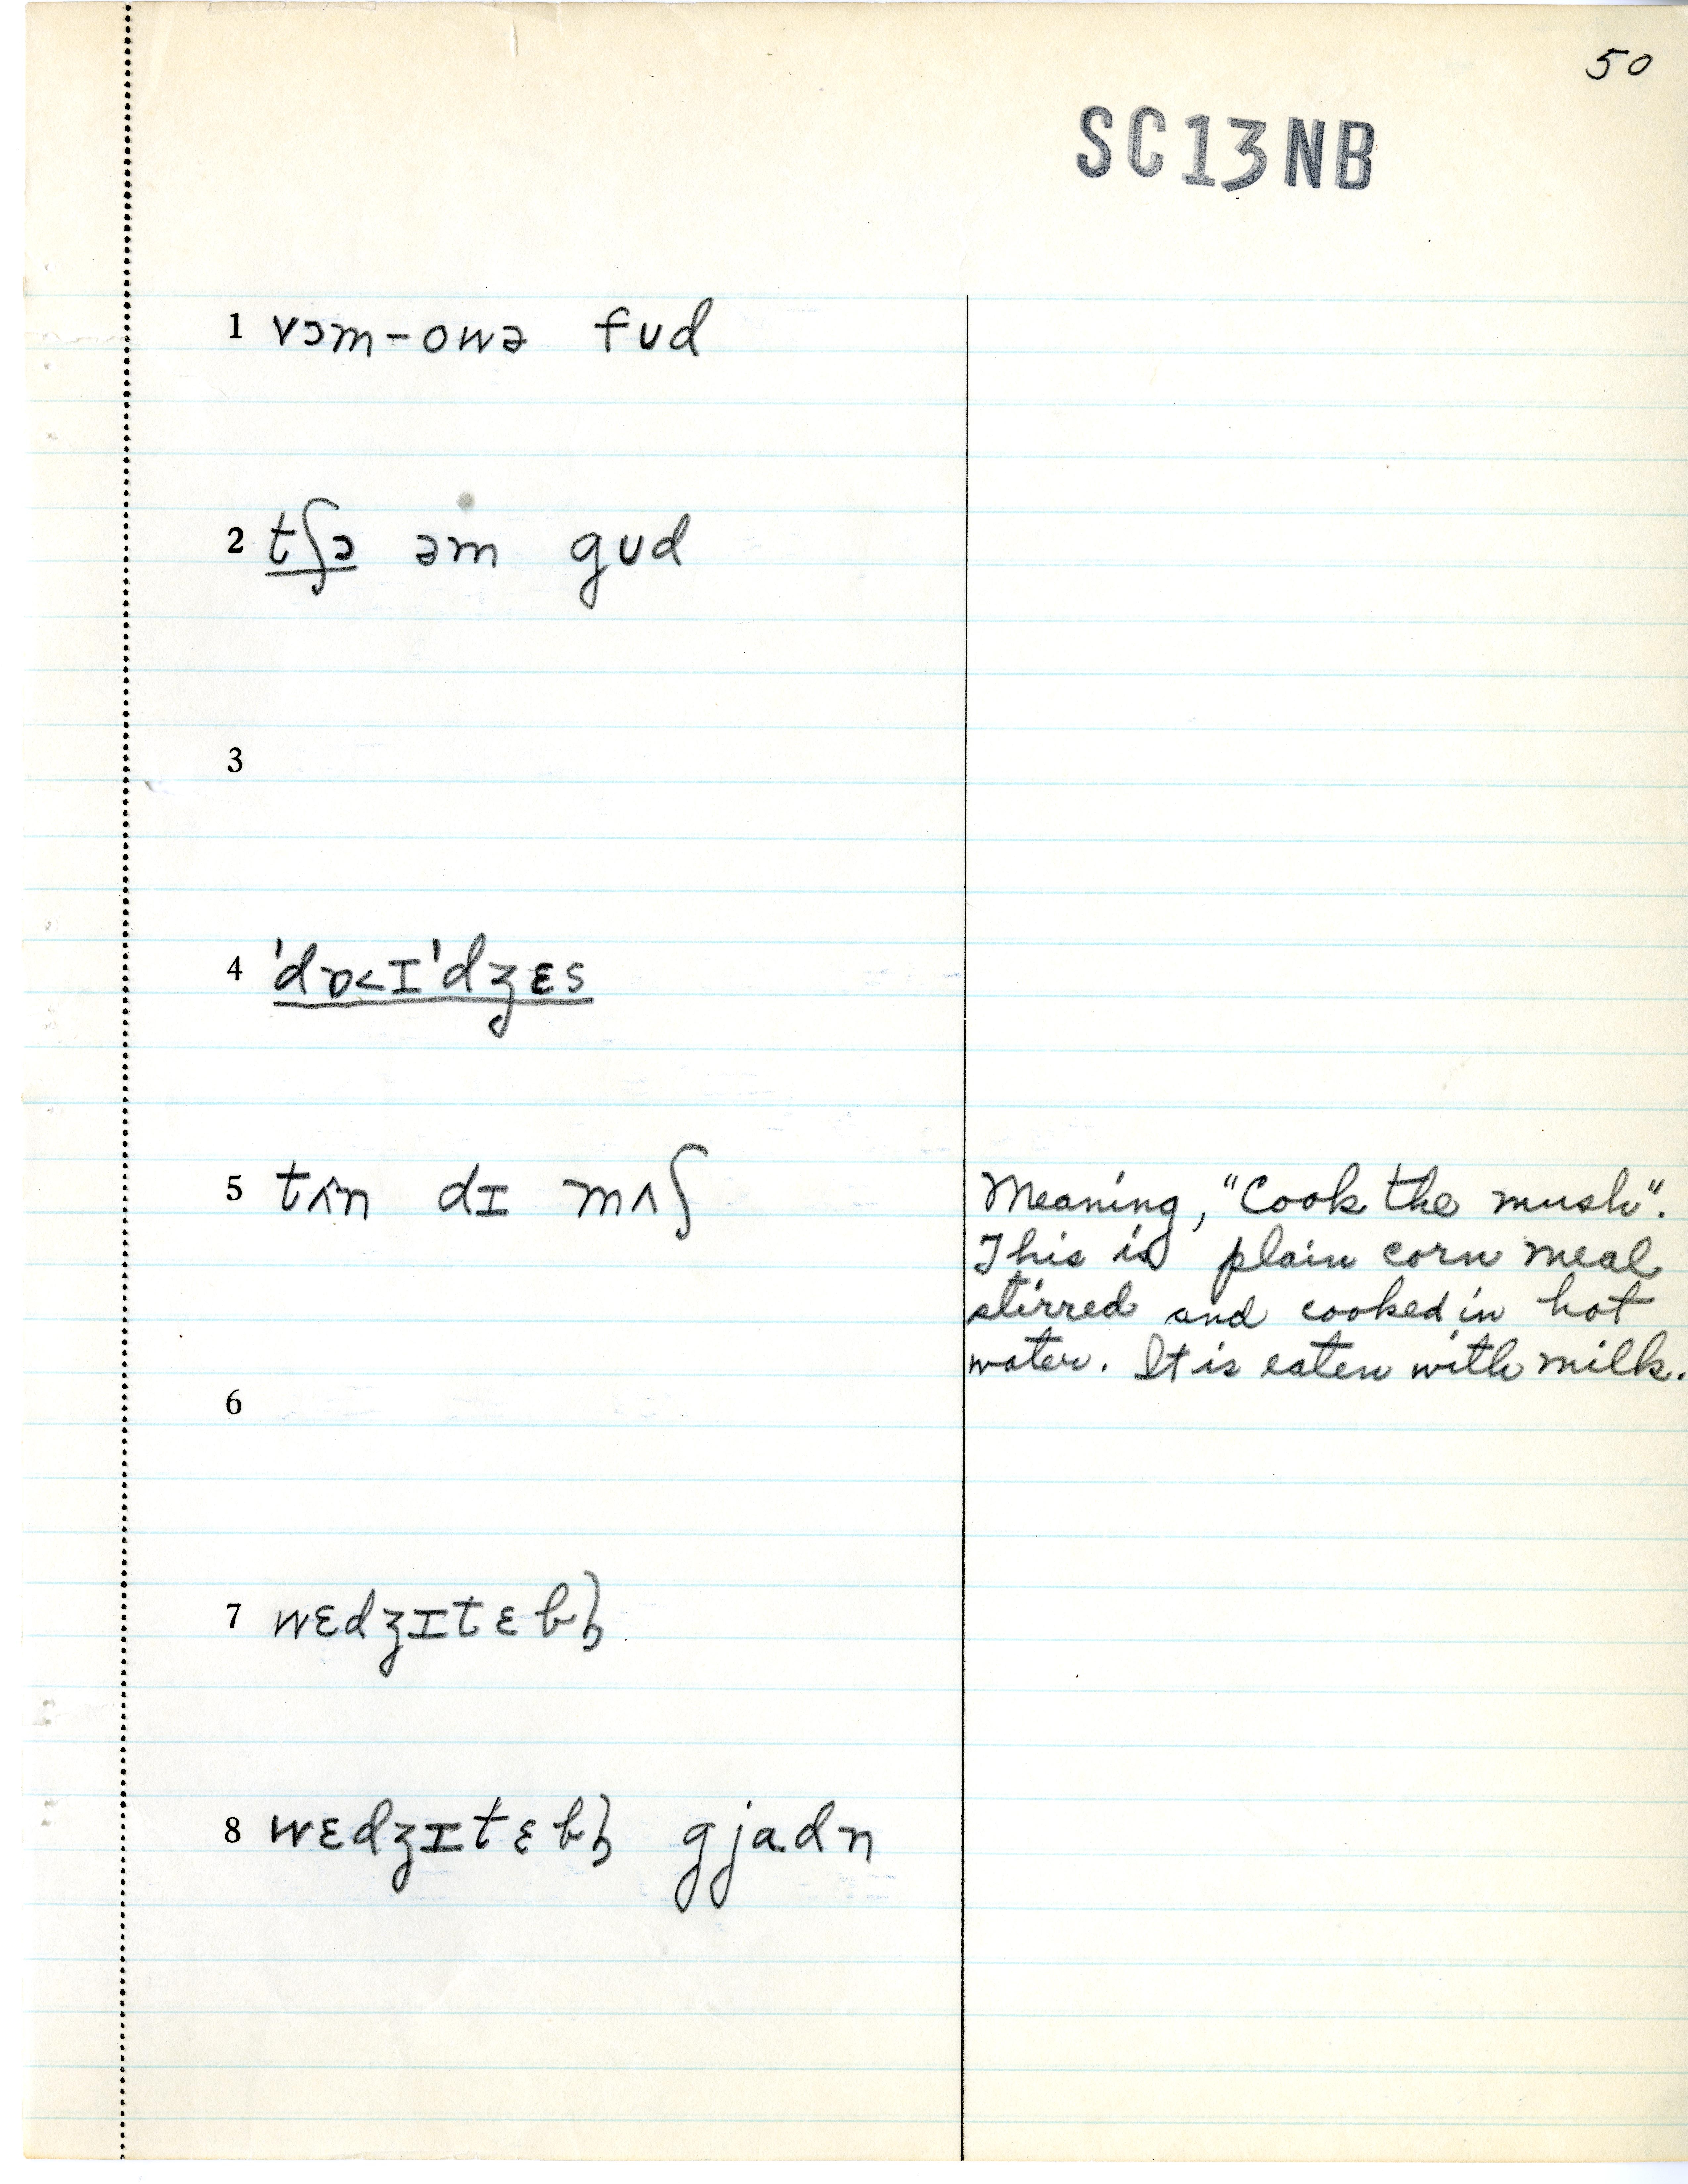 50
SC13NB
1 vɔm-owə fud
2 tʃɔ əm gud
3
4 'dɒ<ɪ'dʒɛs
5 tʌ̂n dɪ mʌʃ
Meaning, "Cook the mush".
This is plain corn meal
stirred and cooked in hot
water. It is eaten with milk.
6
7 wɛdʒɪtɛbḷ
8 wɛdʒɪtɛbḷ gjadn